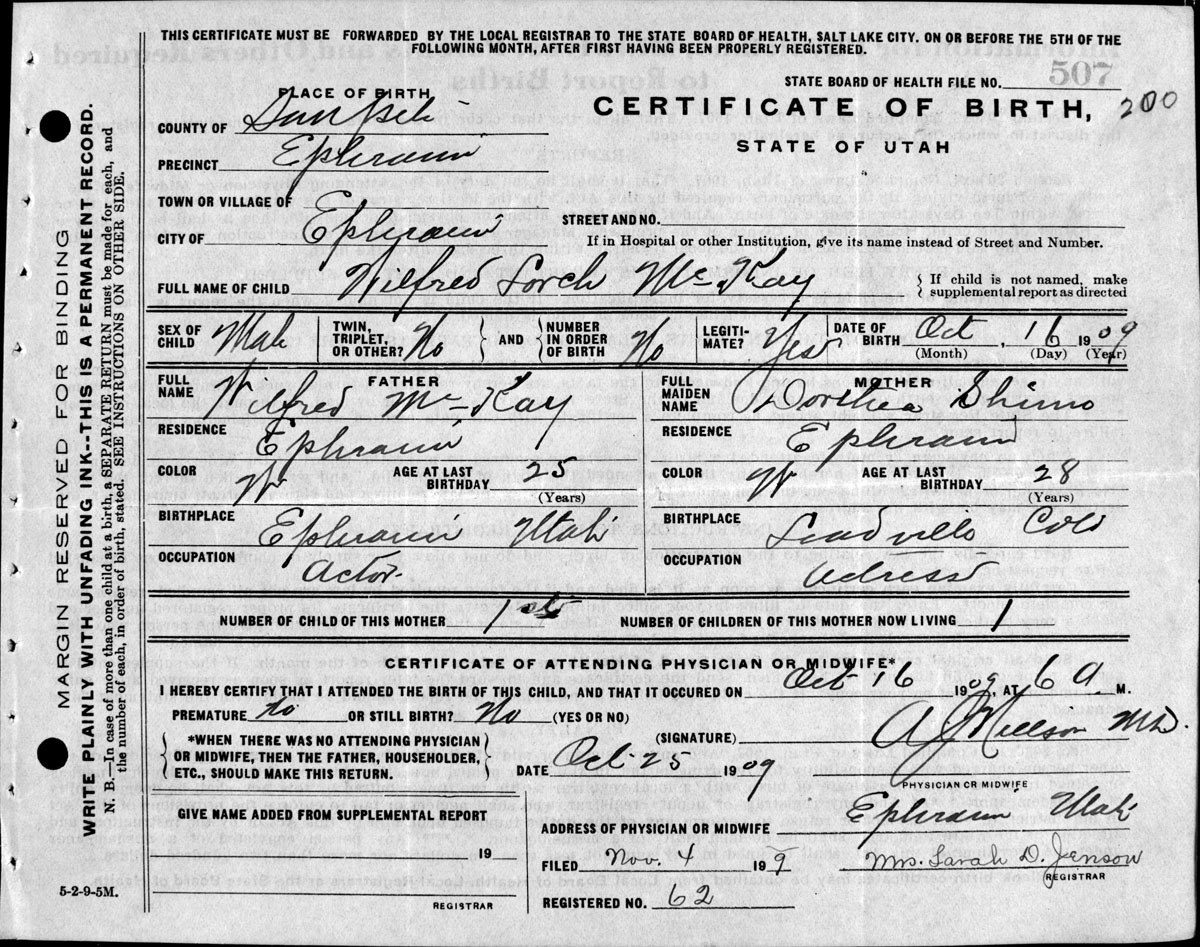 THIS CERTIFICATE MUST BE FORWARDED BY THE LOCAL REGISTRAR TO THE STATE BOARD OF HEALTH, SALT LAKE CITY. ON OR BEFORE THE 5TH OF THE
FOLLOWING MONTH, AFTER FIRST HAVING BEEN PROPERLY REGISTERED.
STATE BOARD OF HEALTH FILE NO. 507
PLACE OF BIRTH
CERTIFICATE OF BIRTH, 200
COUNTY OF Sanpete
STATE OF UTAH
PRECINCT Ephraim
TOWN OR VILLAGE OF
STREET AND NO.
CITY OF Ephraim
If in Hospital or other Institution, give its name instead of Street and Number.
FULL NAME OF CHILD Wilfred Lorch McKay
{ If child is not named, make
supplemental report as directed
SEX OF CHILD Male TWIN, TRIPLET, OR OTHER? No } AND { NUMBER IN ORDER OF BIRTH No LEGITI- MATE? Yes DATE OF BIRTH Oct, 16 1909
(Month) (Day) (Year)
FULL NAME FATHER Wilfred McKay
FULL MAIDEN NAME MOTHER Dorthea
RESIDENCE Ephraim
RESIDENCE Ephraim
COLOR W AGE AT LAST BIRTHDAY 25 (Years)
COLOR W AGE AT LAST BIRTHDAY 28 (Years)
BIRTHPLACE Ephraim Utah
BIRTHPLACE Leadville Colo
OCCUPATION Actor
OCCUPATION Actress
NUMBER OF CHILD OF THIS MOTHER 1st NUMBER OF CHILDREN OF THIS MOTHER NOW LIVING 1
CERTIFICATE OF ATTENDING PHYSICIAN OR MIDWIFE*
I HEREBY CERTIFY THAT I ATTENDED THE BIRTH OF THIS CHILD, AND THAT IT OCCURED ON Oct 16 1909, AT 6 A. M.
PREMATURE No OR STILL BIRTH? No (YES OR NO)
(SIGNATURE) A J Nielson M.D.
{ *WHEN THERE WAS NO ATTENDING PHYSICIAN
OR MIDWIFE, THEN THE FATHER, HOUSEHOLDER,
ETC., SHOULD MAKE THIS RETURN. }
DATE Oct-25 1909
PHYSICIAN OR MIDWIFE
GIVE NAME ADDED FROM SUPPLEMENTAL REPORT
ADDRESS OF PHYSICIAN OR MIDWIFE Ephraim Utah
19
FILED Nov. 4 1909 Mrs. Sarah D. Jenson
REGISTRAR
REGISTERED NO. 62
REGISTRAR
5-2-9-5M.
MARGIN RESERVED FOR BINDING
WRITE PLAINLY WITH UNFADING INK--THIS IS A PERMANENT RECORD.
N. B.—In case of more than one child at a birth, a SEPARATE RETURN must be made for each, and
the number of each, in order of birth, stated. SEE INSTRUCTIONS ON OTHER SIDE.